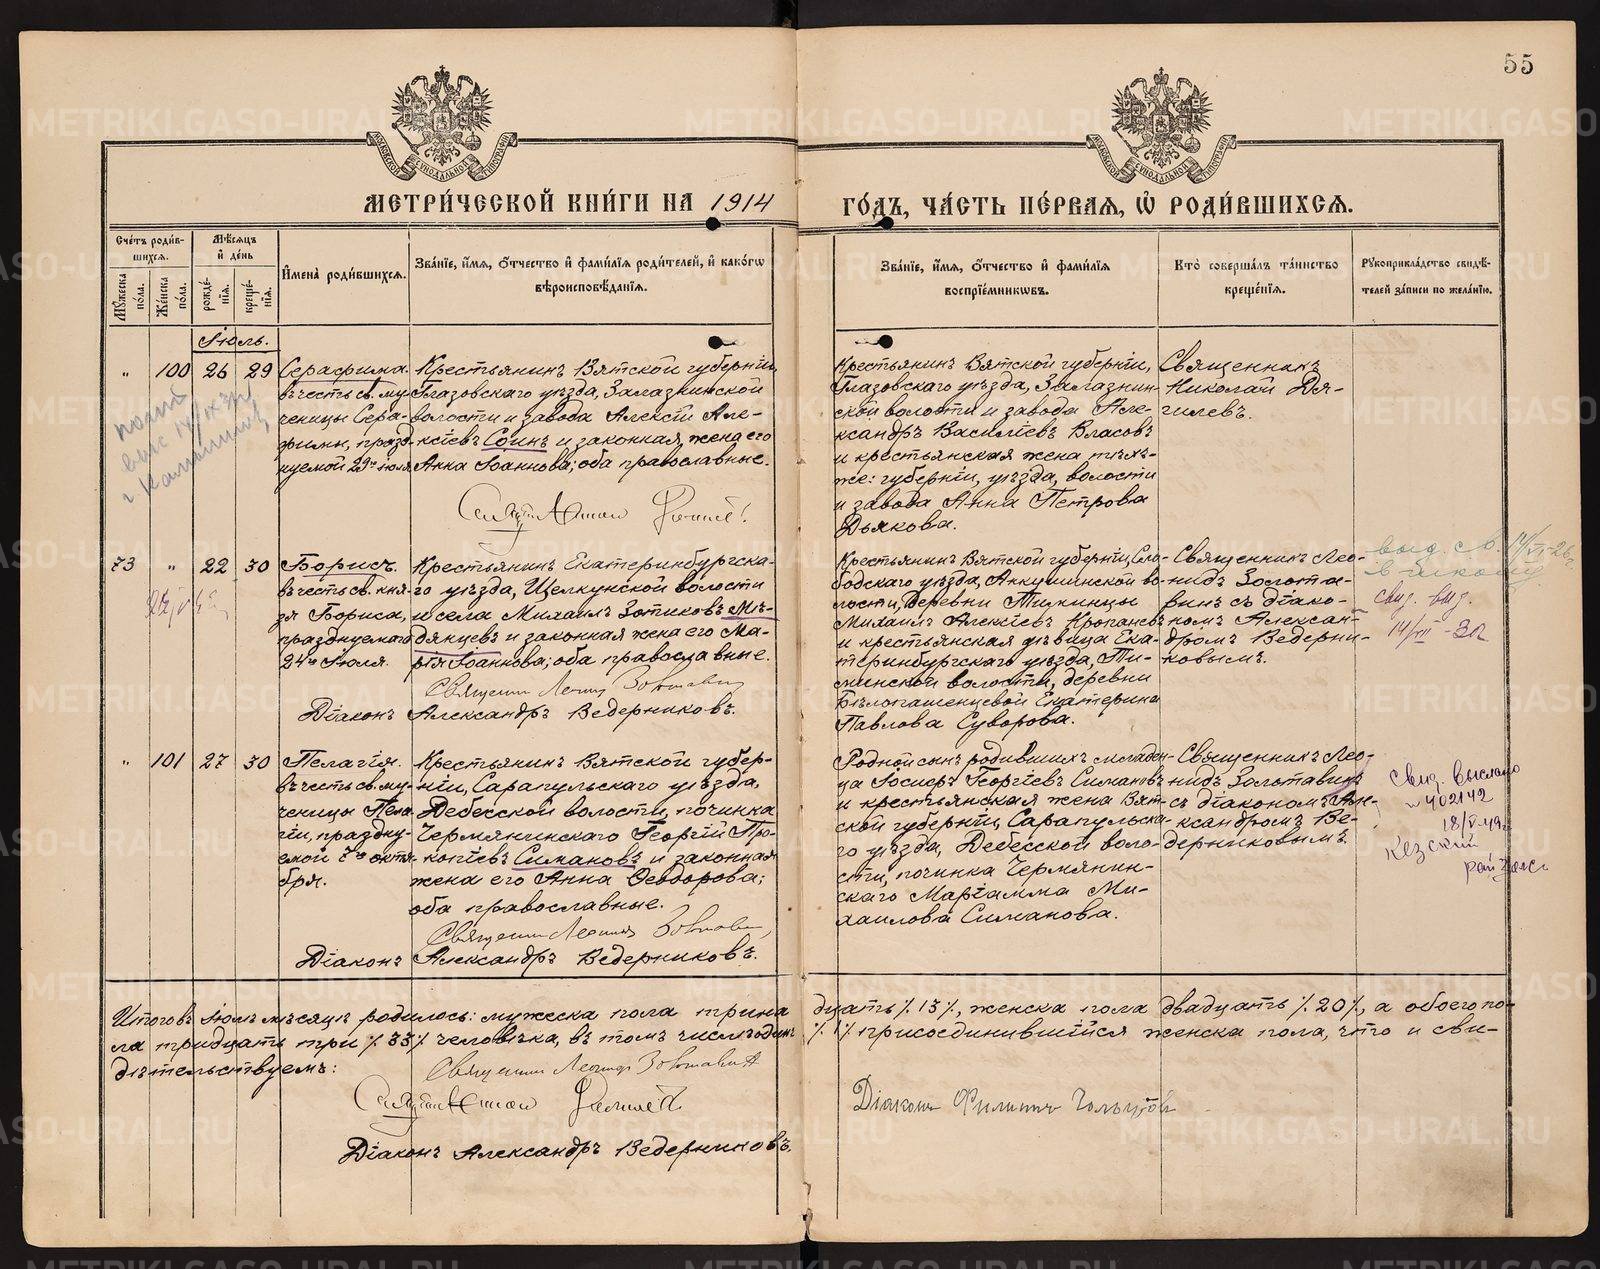 55
МЕТРИ́ЧЕСКОЙ КНИ́ГИ НА 1914 ГО́ДЪ, ЧА́СТЬ ПЕ́РВАЯ, Ѡ҆ РОДИ́ВШИХСЯ.
Сче́тъ роди́в-
шихся.
Мꙋ́жеска по́ла.
Же́нска по́ла.
Мѣ́сяцъ и҆ де́нь
рожде́-нїя.
креще́-нїя.
И҆мена̀ роди́вшихся.
Зва́нїе, и҆́мя, ѻ҆́тчество и҆ фами́лїя роди́телей, и҆ како́гѡ
вѣроисповѣ́данїя.
Зва́нїе, и҆́мя, ѻ҆́тчество и҆ фами́лїя
воспрїе́мникѡвъ.
Кто̀ соверша́лъ та́инство
креще́нїя.
Рꙋкоприкла́дство свидѣ́-
телей за́писи по жела́нїю.
Іюль.
" 100 26 29
Серафима.
въ честь св. му-
ченицы Сера-
фимы, празд-
нуемой 29го іюля
Крестьянинъ Вятской губерніи,
Глазовскаго уѣзда, Залазнинской
волости и завода Алексій Але-
ксіевъ Соинъ и законная жена его
Анна Іоаннова; оба православные.
Крестьянинъ Вятской губерніи,
Глазовскаго уѣзда, Залазнин-
ской волости и завода Але-
ксандръ Василіевъ Власовъ
и крестьянская жена тѣхъ-
же: губерніи, уѣзда, волости
и завода Анна Петрова
Дьякова.
Священникъ
Николай Дя-
гилевъ.
73 " 22 30
Борисъ.
въ честь св. кня-
зя Бориса,
празднуемаго
24го Іюля.
Крестьянинъ Екатеринбургска-
го уѣзда, Щелкунской волости
и села Михаилъ Зотиковъ Мѣ-
дянцевъ и законная жена его Ма-
рія Іоаннова; оба православные.
Священникъ Леонидъ Золотавинъ
Діаконъ Александръ Ведерниковъ.
Крестьянинъ Вятской губерніи, Сло-
бодскаго уѣзда, во-
лости, деревни
Михаилъ Алексіевъ
и крестьянская дѣвица Ека-
теринбургскаго уѣзда, Пы-
шминской волости, деревни
Екатерина
Павлова Суворова.
Священникъ Лео-
нидъ Золота-
винъ съ діако-
номъ Алексан-
дромъ Ведерни-
ковымъ.
выд.
свид. выд.
14/III-32
" 101 27 30
Пелагія.
въ честь св. му-
ченицы Пела-
гіи, праздну-
емой 7го октя-
бря.
Крестьянинъ Вятской губер-
ніи, Сарапульскаго уѣзда,
Дебесской волости, починка
Чермянинскаго Георгій Про-
копіевъ Симановъ и законная
жена его Анна Ѳеодорова;
оба православные.
Священникъ Леонидъ Золотавинъ
Діаконъ Александръ Ведерниковъ.
Родной сынъ родившихъ младен-
ца Іосифъ Георгіевъ Симановъ
и крестьянская жена Вят-
ской губерніи, Сарапульска-
го уѣзда, Дебесской воло-
сти, починка Чермянин-
скаго Маріамма Ми-
хаилова Симанова.
Священникъ Лео-
нидъ Золотавинъ
съ діакономъ Але-
ксандромъ Ве-
дерниковымъ.
Свид. выслано
№ 402142
18/V-49г
Кезский
рай Загс
Итого въ іюлѣ мѣсяцѣ родилось: мужеска пола трина дцать /.13/., женска пола двадцать /.20/., а обоего по-
ла тридцать три /.33/. человѣка, въ томъ числѣ одинъ /.1/. присоединившійся женска пола, что и сви-
дѣтельствуемъ:
Священникъ Леонидъ Золотавинъ
Діаконъ Филиппъ
Діаконъ Александръ Ведерниковъ.
METRIKI.GASO-URAL.RU